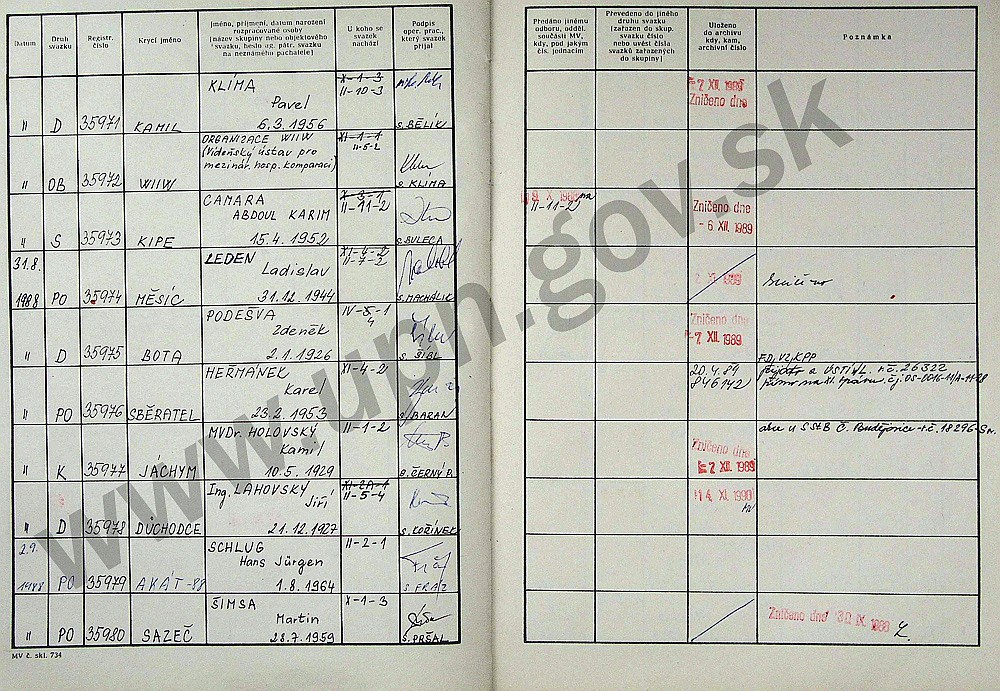 Datum
Druh
svazku
Registr.
číslo
Krycí jméno
Jméno, příjmení, datum narození
rozpracované osoby
(název skupiny nebo objektového
svazku, heslo ag. pátr. svazku
na neznámého pachatele)
U koho se
svazek
nachází
Podpis
oper. prac.,
který svazek
přijal
Předáno jinému
odboru, odděl.
součásti MV,
kdy, pod jakým
čís. jednacím
Převedeno do jiného
druhu svazku
(zařazen do skup.
svazku číslo
nebo uvést čísla
svazků zařazených
do skupiny)
Uloženo
do archivu
kdy, kam,
archivní číslo
Poznámka
" D 35971 KAMIL
KLÍMA
Pavel
6.3.1956
X-1-3
II-10-3
S. BĚLÍK
7 XII. 1989
Zničeno dne
" OB 35972 WIIW
ORGANIZACE WIIW
(Vídeňský ústav pro
mezinár. hosp. komparaci)
XI-1-1
II-5-2
S. KLÍMA
" S 35973 KIPE
CAMARA
ABDOUL KARIM
15.4.1952
X-3-1
II-11-2
S. BULECA
II-11-2
Zničeno dne
- 6 XII. 1989
31.8.
1988 PO 35974 MĚSÍC
LEDEN
Ladislav
31.12.1944
XI-4-2
II-7-2
S. MACHÁLIK
" D 35975 BOTA
PODEŠVA
Zdeněk
2.1.1926
IV-5-1
4
S. ŠÍBL
Zničeno dne
-7 XII. 1989
" PO 35976 SBĚRATEL
HEŘMÁNEK
Karel
23.2.1953
XI-4-2
S. BARAN
20.4.89
846142
F.D, VZ, KPP
a ÚSTÍ N/L. r.č. 26322
" K 35977 JÁCHYM
MVDr. HOLOVSKÝ
Kamil
10.5.1929
II-1-2
S. ČERNÝ P.
Zničeno dne
7 XII. 1989
akce u S StB Č. Budějovice - r.č. 18296
" D 35978 DŮCHODCE
Ing. LAHOVSKÝ
Jiří
21.12.1927
XI-2A-1
II-5-4
S. KOŘÍNEK
14. XI. 1990
2.9.
1988 PO 35979 AKÁT-88
SCHLUG
Hans Jürgen
1.8.1964
II-2-1
S. FRAZ
" PO 35980 SAZEČ
ŠIMSA
Martin
28.7.1959
X-1-3
S. PRŠAL
Zničeno dne 30. IX. 1988
MV č. skl. 734
www.upn.gov.sk